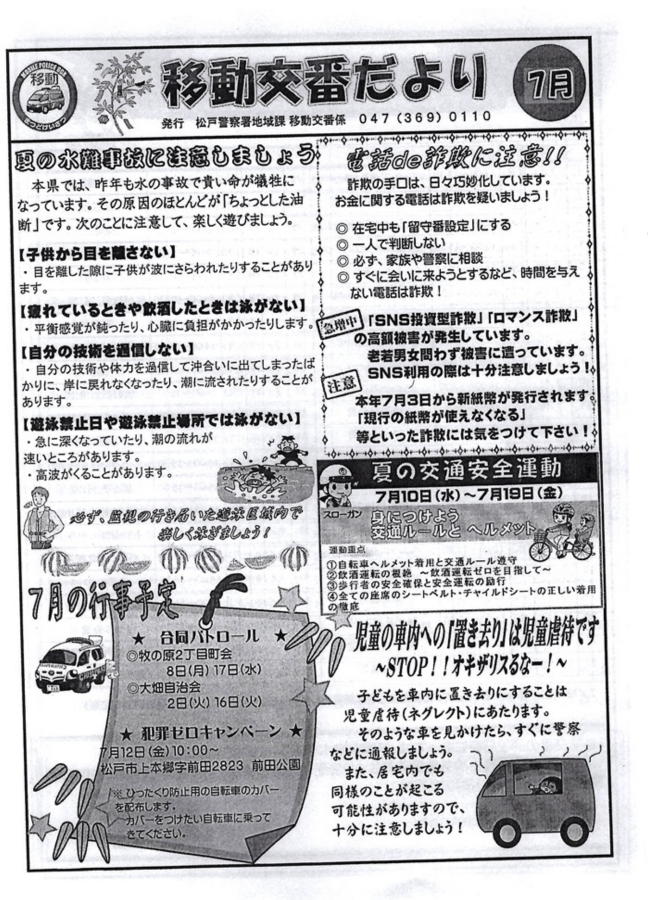 MOBILE POLICE BOX
移動
まつどけいさつ
移動交番だより
7月
発行 松戸警察署地域課 移動交番係 047(369)0110
夏の水難事故に注意しましょう
本県では、昨年も水の事故で貴い命が犠牲に
なっています。その原因のほとんどが「ちょっとした油
断」です。次のことに注意して、楽しく遊びましょう。
【子供から目を離さない】
・目を離した隙に子供が波にさらわれたりすることがあり
ます。
【疲れているときや飲酒したときは泳がない】
・平衡感覚が鈍ったり、心臓に負担がかかったりします。
【自分の技術を過信しない】
・自分の技術や体力を過信して沖合いに出てしまったば
かりに、岸に戻れなくなったり、潮に流されたりすることが
あります。
【遊泳禁止日や遊泳禁止場所では泳がない】
・急に深くなっていたり、潮の流れが
速いところがあります。
・高波がくることがあります。
必ず、監視の行き届いた遊泳区域内で
楽しく泳ぎましょう!
電話de詐欺に注意!!
詐欺の手口は、日々巧妙化しています。
お金に関する電話は詐欺を疑いましょう!
◎ 在宅中も「留守番設定」にする
◎ 一人で判断しない
◎ 必ず、家族や警察に相談
◎ すぐに会いに来ようとするなど、時間を与え
ない電話は詐欺!
急増中
「SNS投資型詐欺」「ロマンス詐欺」
の高額被害が発生しています。
老若男女問わず被害に遭っています。
SNS利用の際は十分注意しましょう!
注意
本年7月3日から新紙幣が発行されます。
「現行の紙幣が使えなくなる」
等といった詐欺には気をつけて下さい!
夏の交通安全運動
7月10日(水)～7月19日(金)
スローガン
身につけよう
交通ルールと ヘルメット
運動重点
①自転車ヘルメット着用と交通ルール遵守
②飲酒運転の根絶 ～飲酒運転ゼロを目指して～
③歩行者の安全確保と安全運転の励行
④全ての座席のシートベルト・チャイルドシートの正しい着用
の徹底
7月の行事予定
★ 合同パトロール ★
◎牧の原2丁目町会
8日(月)17日(水)
◎大畑自治会
2日(火)16日(火)
★ 犯罪ゼロキャンペーン ★
7月12日(金)10:00～
松戸市上本郷字前田2823 前田公園
※ ひったくり防止用の自転車のカバー
を配布します。
カバーをつけたい自転車に乗って
きてください。
児童の車内への「置き去り」は児童虐待です
～STOP!!オキザリスるなー!～
子どもを車内に置き去りにすることは
児童虐待(ネグレクト)にあたります。
そのような車を見かけたら、すぐに警察
などに通報しましょう。
また、居宅内でも
同様のことが起こる
可能性がありますので、
十分に注意しましょう!